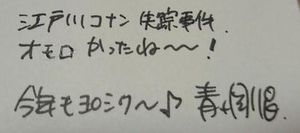 江戸川コナン失踪事件.
オモロかったね〜〜!
今年もヨロシク〜♪ 青山剛昌